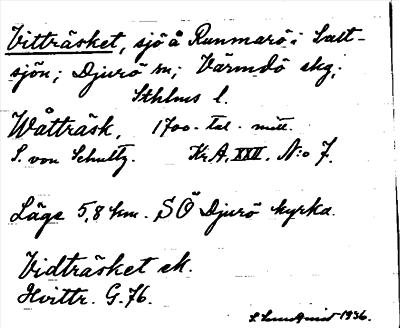 Vitträsket, sjö å Runmarö i Salt-
sjön; Djurö sn; Värmdö skg;
Sthlms l.
Wåtträsk, 1700-tal. mitt.
S. von Schultz. Kr.A. XXII. N:o 7.
Läge 5,8 km. SÖ Djurö kyrka.
Vidträsket ek.
Hvittr. G. 76.
S. Lundqvist 1936.